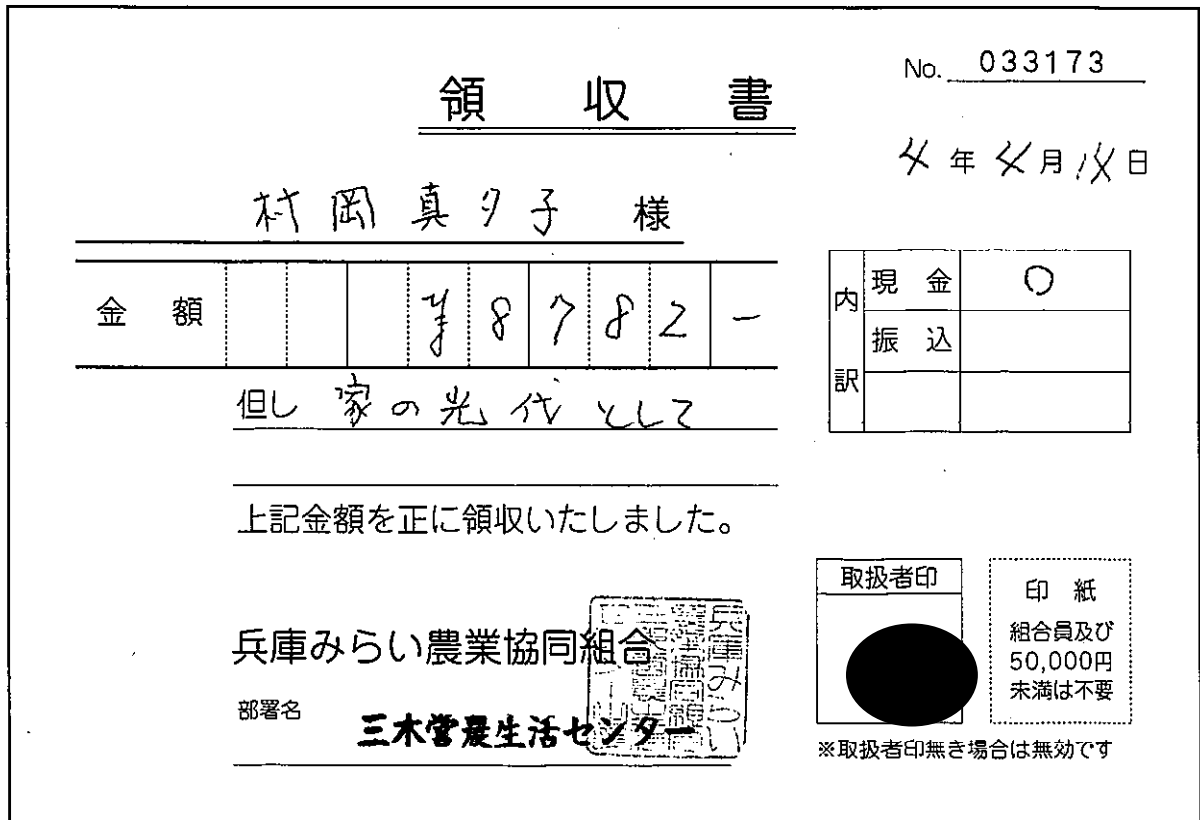 No. 033173
領収書
4年4月18日
村岡真夕子 様
金額 ¥8782-
内訳
現金 ○
振込
但し 家の光代として
上記金額を正に領収いたしました。
兵庫みらい農業協同組合
部署名 三木営農生活センター
取扱者印
印紙
組合員及び
50,000円
未満は不要
※取扱者印無き場合は無効です